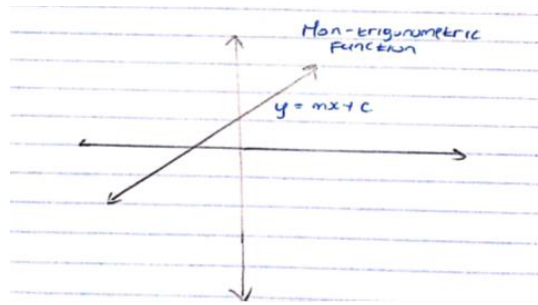 Non-trigonometric
Function
y = mx + c